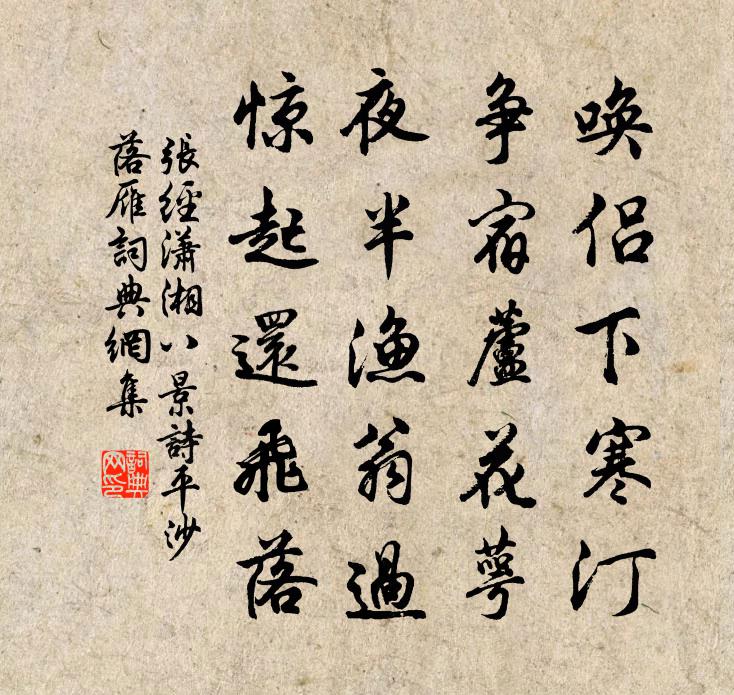 唤侣下寒汀
争宿蘆花萼
夜半漁翁過
惊起還飛落
張經瀟湘八景詩平沙
落雁詞典網集
詞典
网印